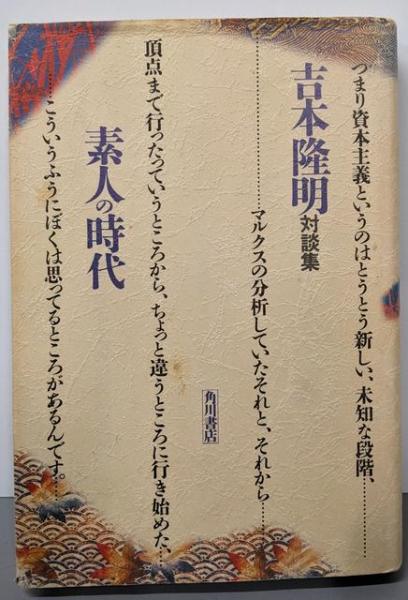 つまり資本主義というのはとうとう新しい、未知な段階、…………
吉本隆明対談集
…………………マルクスの分析していたそれと、それから…………
角川書店
頂点まで行ったっていうところから、ちょっと違うところに行き始めた、……
素人の時代
……こういうふうにぼくは思ってるところがあるんです。……